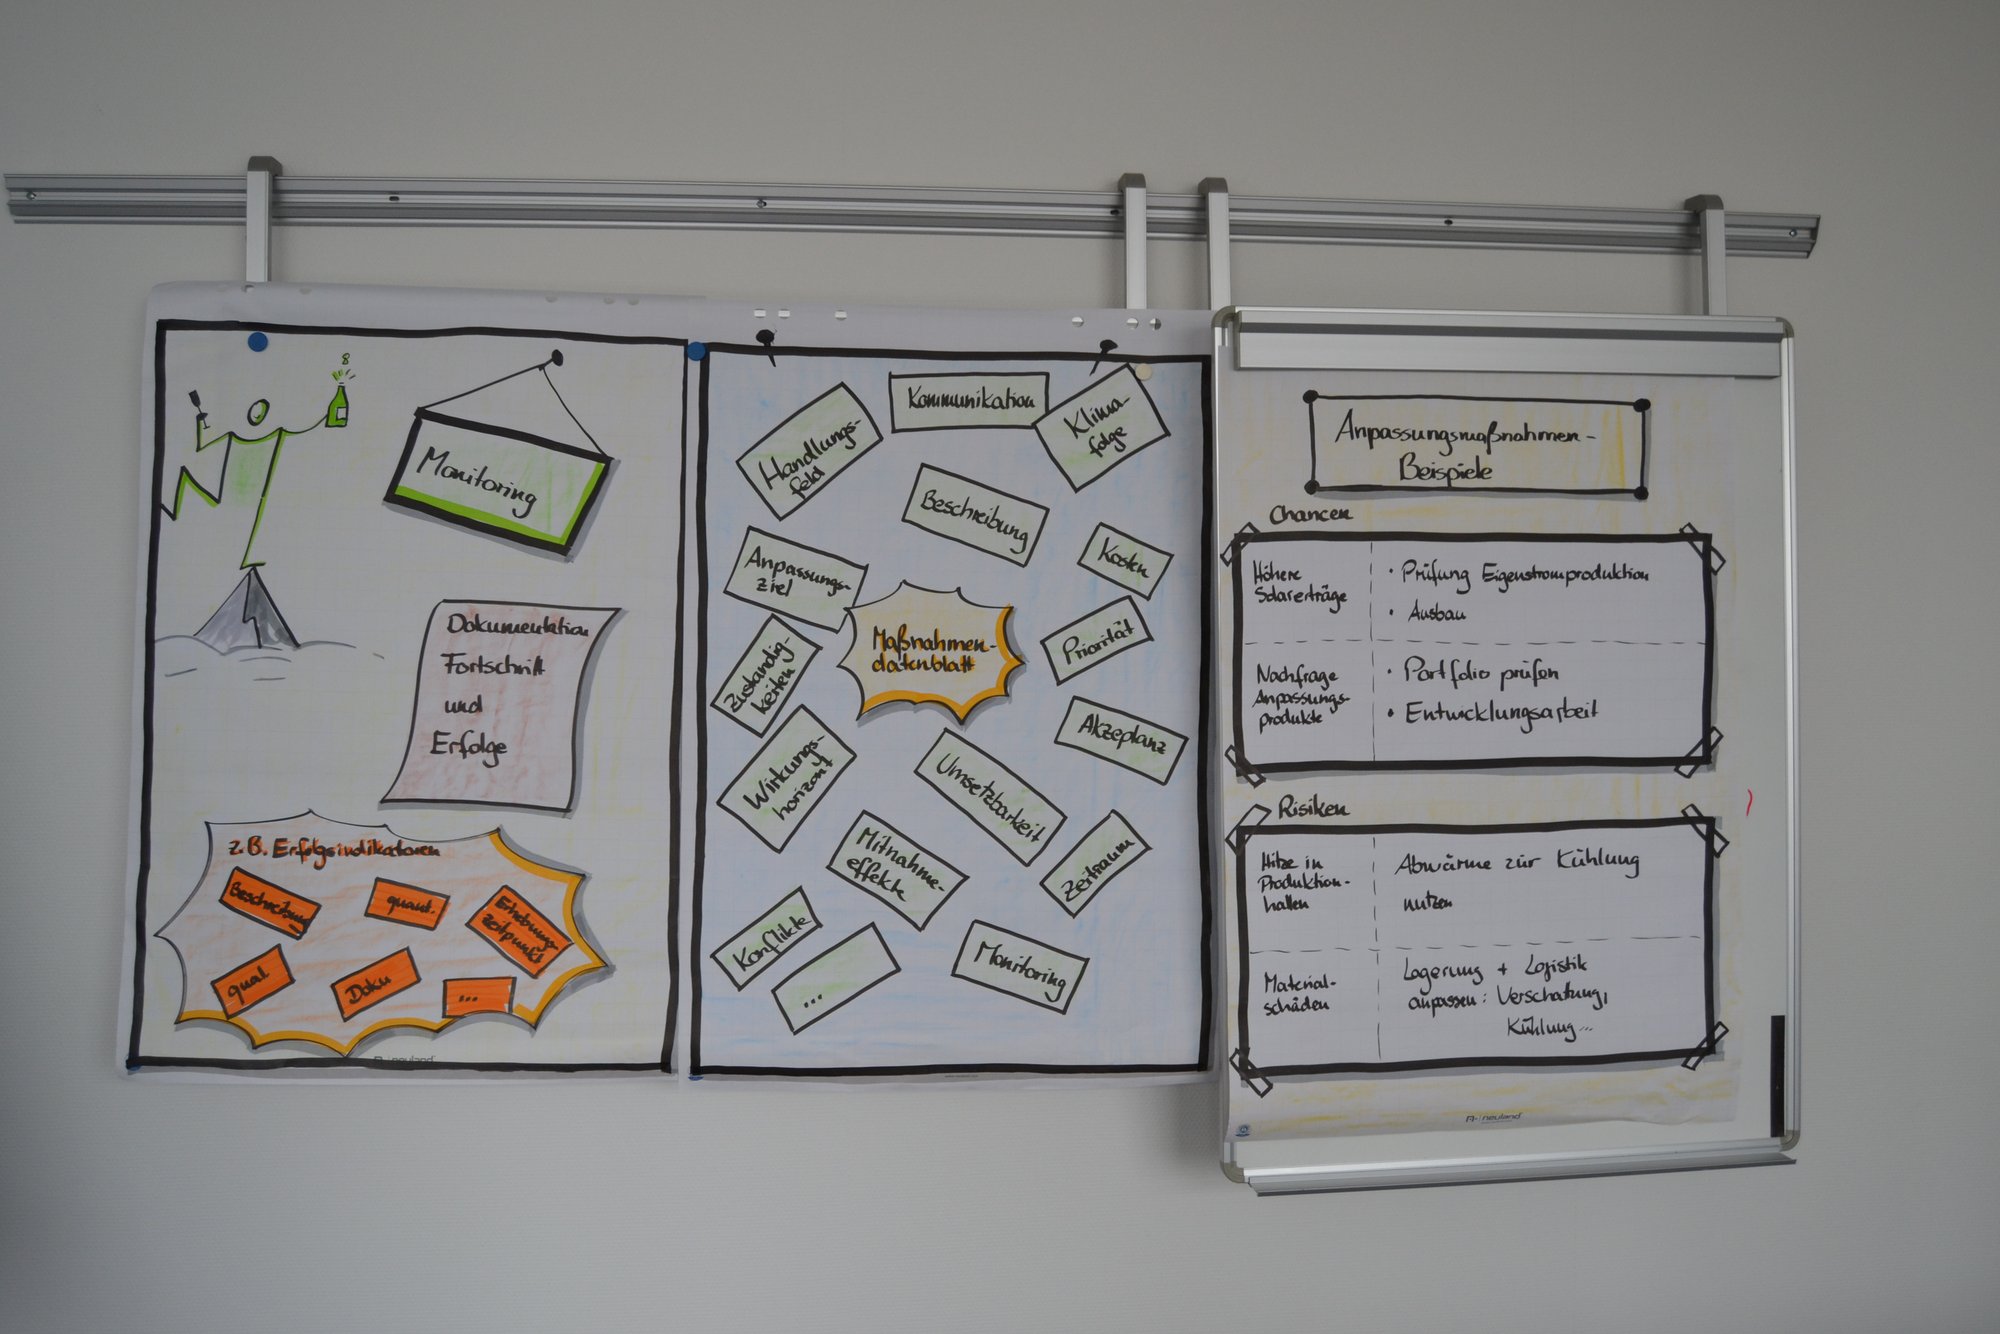 Monitoring
Dokumentation
Fortschritt
und
Erfolge
z.B. Erfolgsindikatoren
Beschreibung
quant.
Erhebungs-
zeitpunkt
qual
Doku
...
neuland
Kommunikation
Handlungs-
feld
Klima-
folge
Beschreibung
Kosten
Anpassungs-
ziel
Maßnahmen-
datenblatt
Priorität
Zuständig-
keiten
Akzeptanz
Wirkungs-
horizont
Umsetzbarkeit
Mitnahme-
effekte
Zeitraum
Konflikte
...
Monitoring
Anpassungsmaßnahmen-
Beispiele
Chancen
Höhere
Solarerträge
• Prüfung Eigenstromproduktion
• Ausbau
Nachfrage
Anpassungs-
produkte
• Portfolio prüfen
• Entwicklungsarbeit
Risiken
Hitze in
Produktion-
hallen
Abwärme zur Kühlung
nutzen
Material-
schäden
Lagerung + Logistik
anpassen: Verschattung,
Kühlung...
neuland